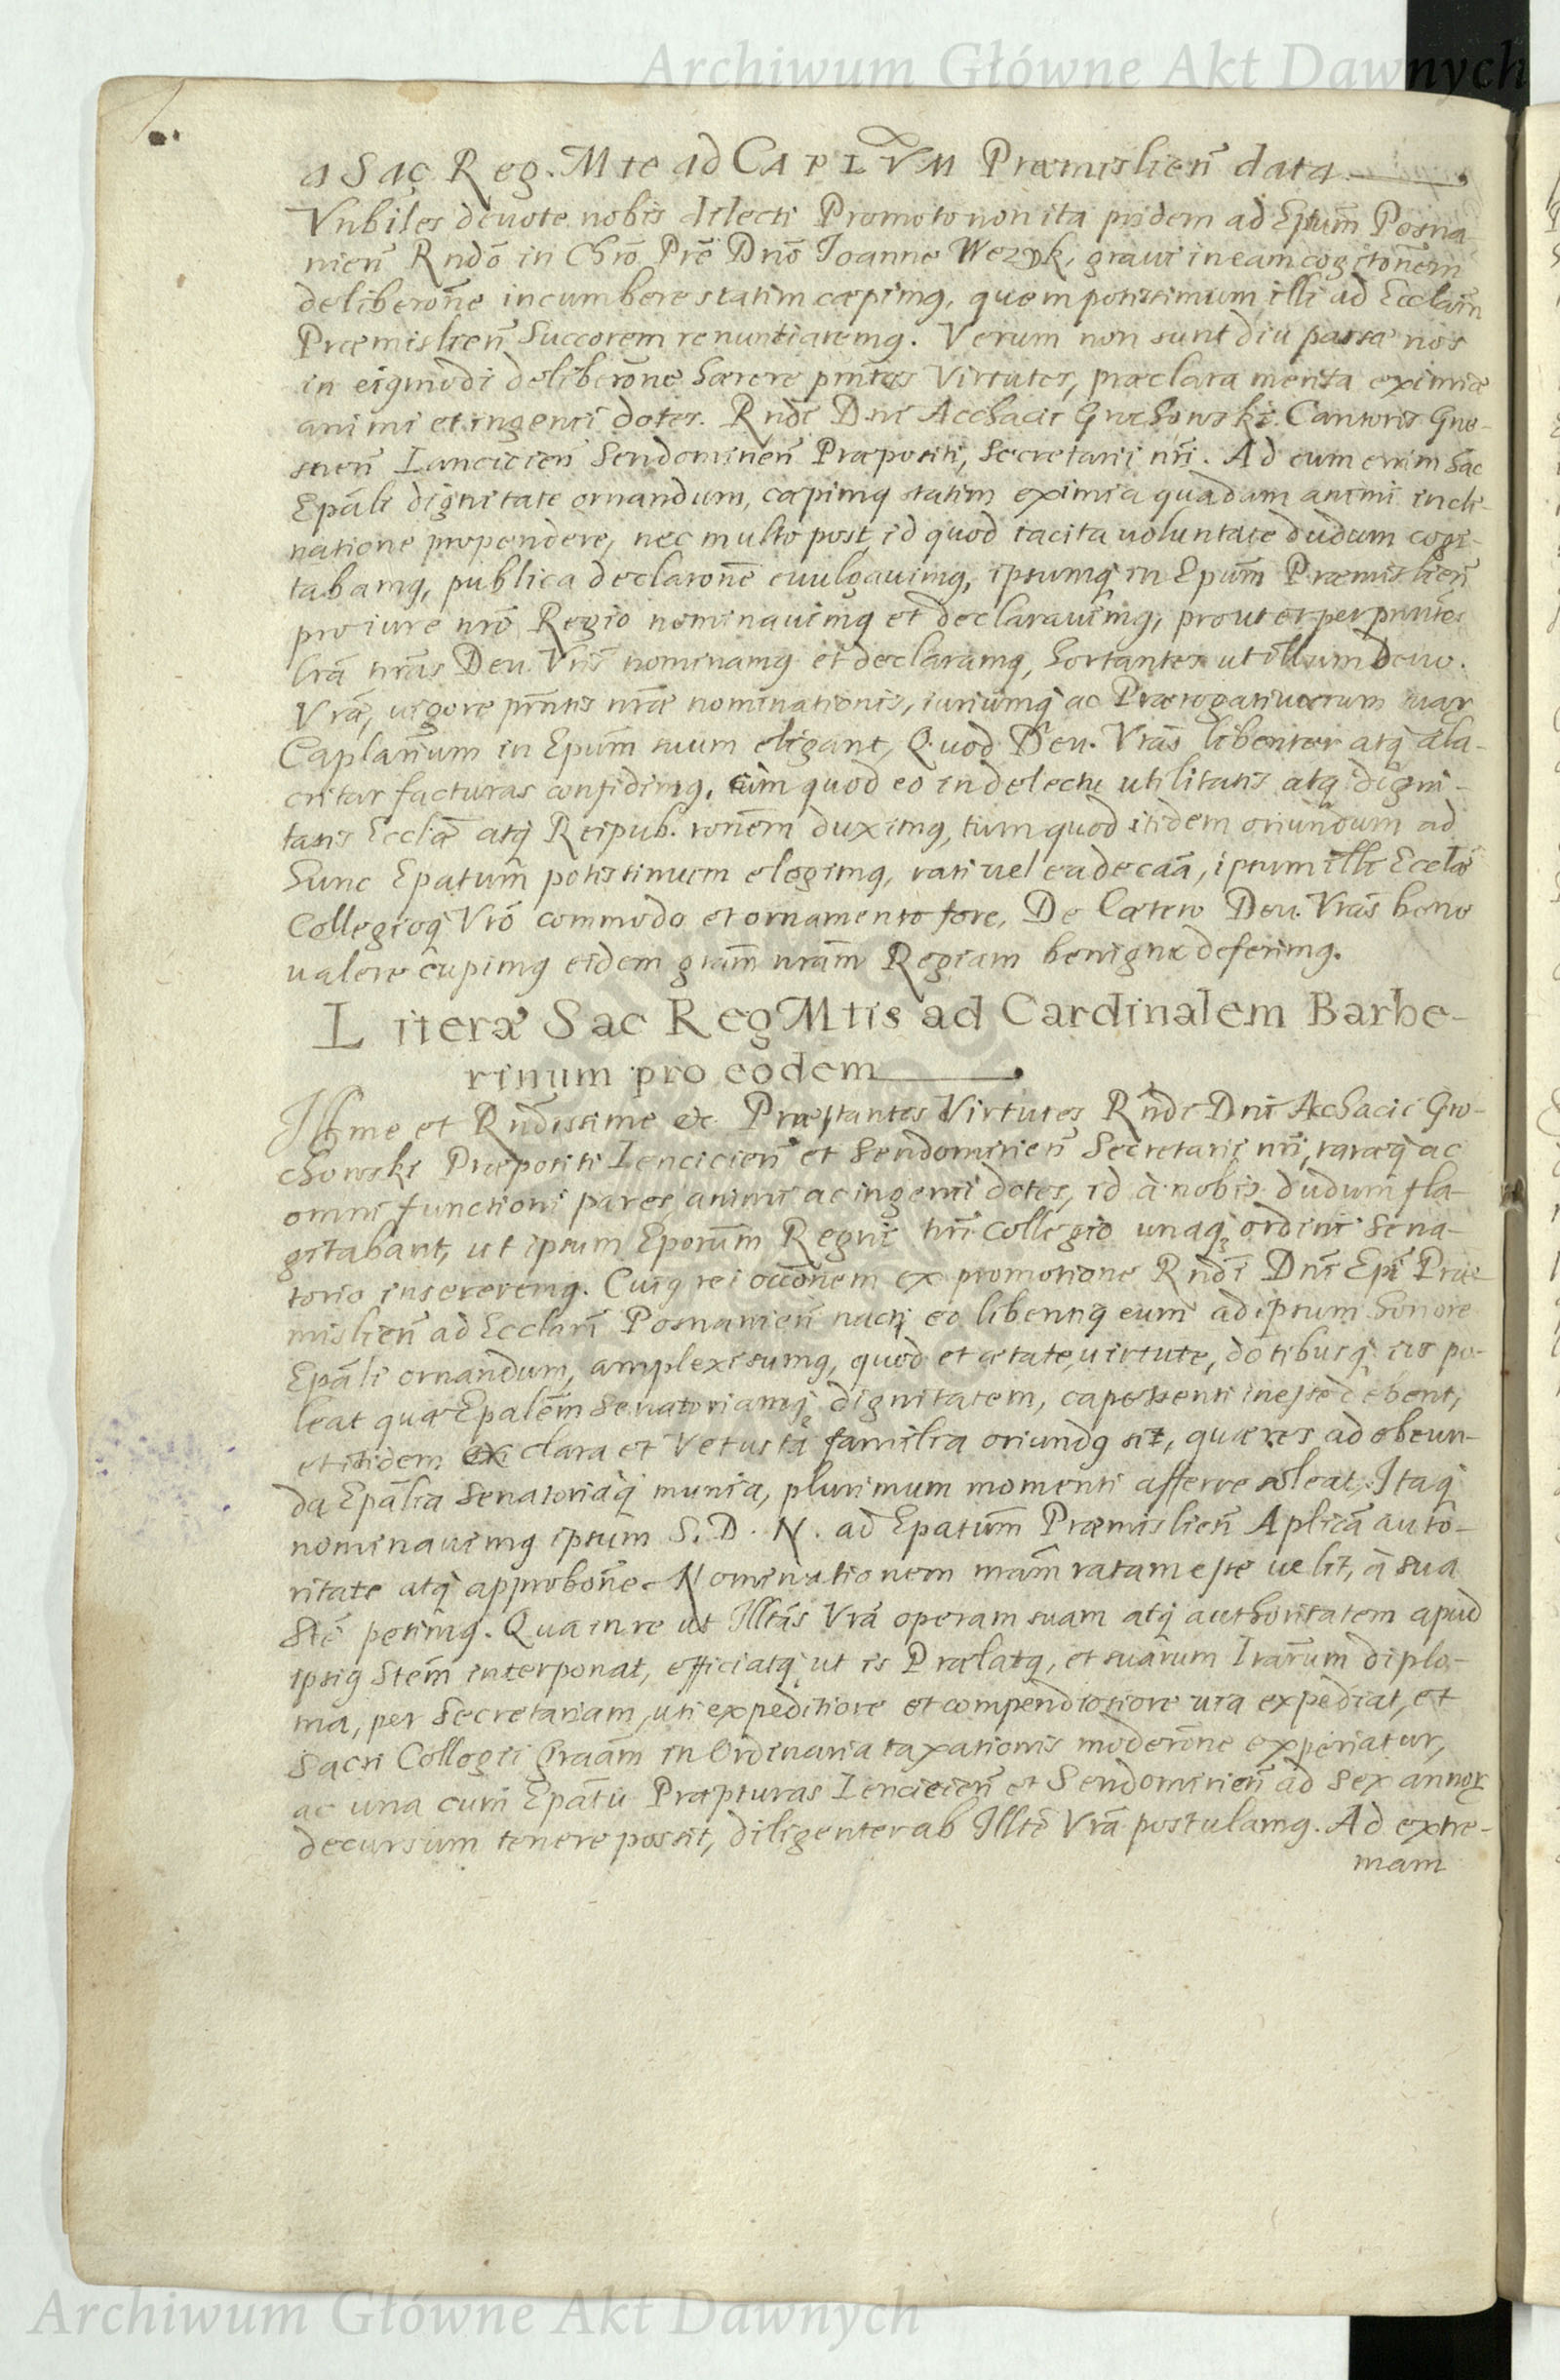 Archiwum Główne Akt Dawnych
a Sac Reg. Mte ad CAPLVM Præmislień data
Vnbiles deuote nobis dilecti Promoto non ita pridem ad Eptum̃ Posna
nień Rndõ in Chrõ Prẽ Dnõ Joanne Wezyk, graui in eam cogitoñem
deliberoñe incumbere statim cæpimꝗ, quem potissimum illi ad Ecclam̃
Præmislień Succorem renuntiaremꝗ. Verum non sunt diu passæ nos
in eiꝗmodi deliberoñe hærere pm̃tes Virtutes, præclara merita eximiæ
animi et ingenii dotes. Rndi Dni Acchacii Grochowski Cantoris Gne-
snen̄ Lancicień Sendomirień Præpositi, Secretarii nri. Ad eum enim hac
Epãli dignitate ornandum, cæpimꝗ statim eximia quadam animi incli-
natione propendere, nec multo post id quod tacita uoluntate dudum cogi-
tabamꝗ, publica declaroñe euulgauimꝗ, ipsumqꝫ in Epum̃ Præmislień
pro iure nrõ Regio nominauimꝗ et declarauimꝗ, prout et per pñtes
lrã nrãs Deu. Vris nominamꝗ et declaramꝗ, hortantes ut illum Deuo.
Vrã, uigore pñtis nrãe nominationis, iuriumqꝫ ac Prærogatiuarum suarꝝ
Caplarium in Epum̃ suum eligant, Quod Deu. Vrãs libenter atqꝫ ala-
criter facturas confidimꝗ, cùm quod eo in delectu utilitatis atqꝫ digni-
tatis Ecclæ̃ atqꝫ Reipub. roñem duximꝗ, tùm quod itidem oriundum ad
hunc Epatum̃ potissimum elegimꝗ, rati uel ea de caã, ipsum illi Ecclæ̃
Collegioqꝫ Vrõ commodo et ornamento fore. De Cætero Deu. Vrãs bene
ualere cupimꝗ eidem gram̃ nram̃ Regiam benigne deferimꝗ.
Literæ Sac Reg Mtis ad Cardinalem Barbe-
rinum pro eodem
Illme et Rndissime &c. Præstantes Virtutes Rndi Dni Achacii Gro-
chowski Præpositi Lencicień et Sendomirień Secretarii nri, raræqꝫ ac
omni functioni pares animi ac ingenii dotes, id à nobis dudum fla-
gitabant, ut ipsum Eporum̃ Regni nri Collegio unaqꝫ ordini Sena-
torio insereremꝗ. Cuiꝗ rei occoñem ex promotione Rndi Dni Epi Præ-
mislień ad Ecclam̃ Posnanień nacti eo libentiꝗ eum ad ipsum honore
Epãli ornandum, amplexi sumꝗ, quod et ætate, uirtute, dotibusqꝫ iis po-
leat quæ Epalem̃ Senatoriamqꝫ dignitatem, capessenti inesse debent,
et itidem ex clara et Vetusta familia oriundꝗ sit, quæ res ad obeun-
da Epãlia Senatoriaqꝫ munia, plurimum momenti afferre soleat, Itaqꝫ
nominauimꝗ ipsum S. D. N. ad Epatum̃ Præmislień Aplicã auto-
ritate atqꝫ approboñe. Nominationem nram̃ ratam esse uelit, à sua
Stẽ petimꝗ. Qua in re ut Illtãs Vrã operam suam atqꝫ authoritatem apud
ipsiꝗ Stem̃ interponat, efficiatqꝫ ut is Prælatꝗ, et suarum Lrarum̃ diplo-
ma, per Secretariam, uti expeditiore et compendiosiore uia expediat, et
Sacri Collegii Graãm in Ordinaria taxationis moderoñe experiatur,
ac una cum Epãtu Præpturas Lencicień et Sendomirień ad Sex annorꝝ
decursum tenere possit, diligenter ab Illtẽ Vrã postulamꝗ. Ad extre-
mam
Archiwum Główne Akt Dawnych